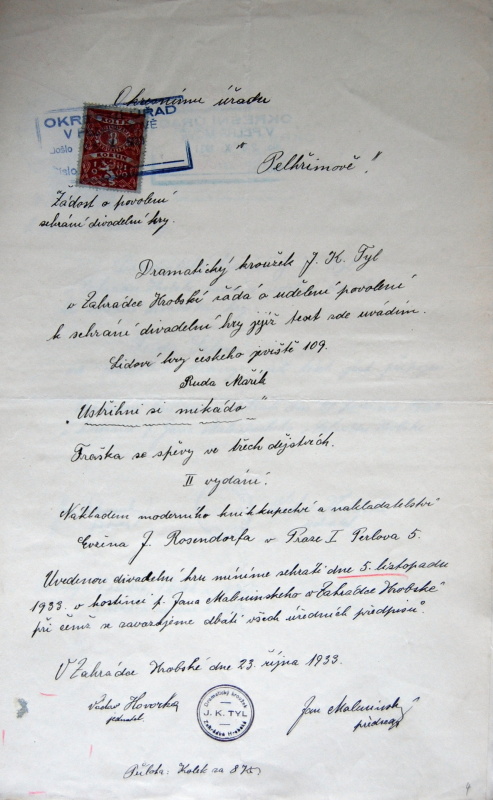 Okresnímu úřadu
OKRE ŘAD
V
Došlo
Číslo
KOLEK
KORUN
v
Pelhřimově!
Žádost o povolení
sehrání divadelní hry.
Dramatický kroužek J. K. Tyl
v Zahrádce Hrobské žádá o udělení povolení
k sehrání divadelní hry jejíž text zde uvádím.
Lidové hry českeho jeviště 109.
Ruda Mařík
„Ustřihni si mikádo"
Fraška se spěvy ve třech dějstvích.
II vydání.
Nákladem moderního knihkupectví a nakladatelství
Evžena J. Rosendorfa v Praze I Perlova 5.
Uvedenou divadelní hru míníme sehráti dne 5. listopadu
1933. v hostinci p. Jana Maleninskeho v „Zahrádce Hrobské"
při čemž se zavazujeme dbáti všech úředních předpisů.
V Zahrádce Hrobské dne 23. října 1933.
Václav Hovorka
jednatel.
Dramatický kroužek
J. K. TYL
Zahrádka Hrobská
Jan Maleninsk
předseda
Příloha: Kolek za 8 Kč